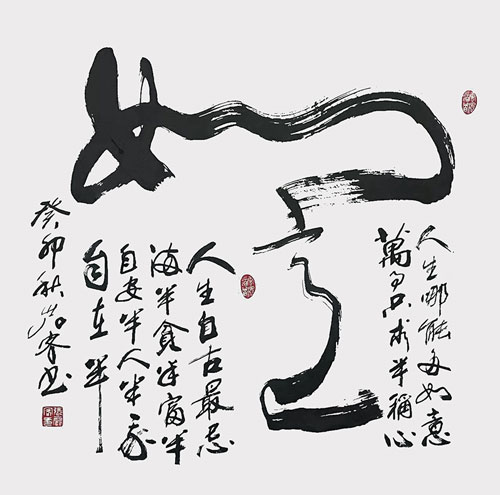 如意
人生哪能多如意
萬事只求半稱心
人生自古最忌
滿半貧半富半
自安半人半我
自在半
癸卯秋書